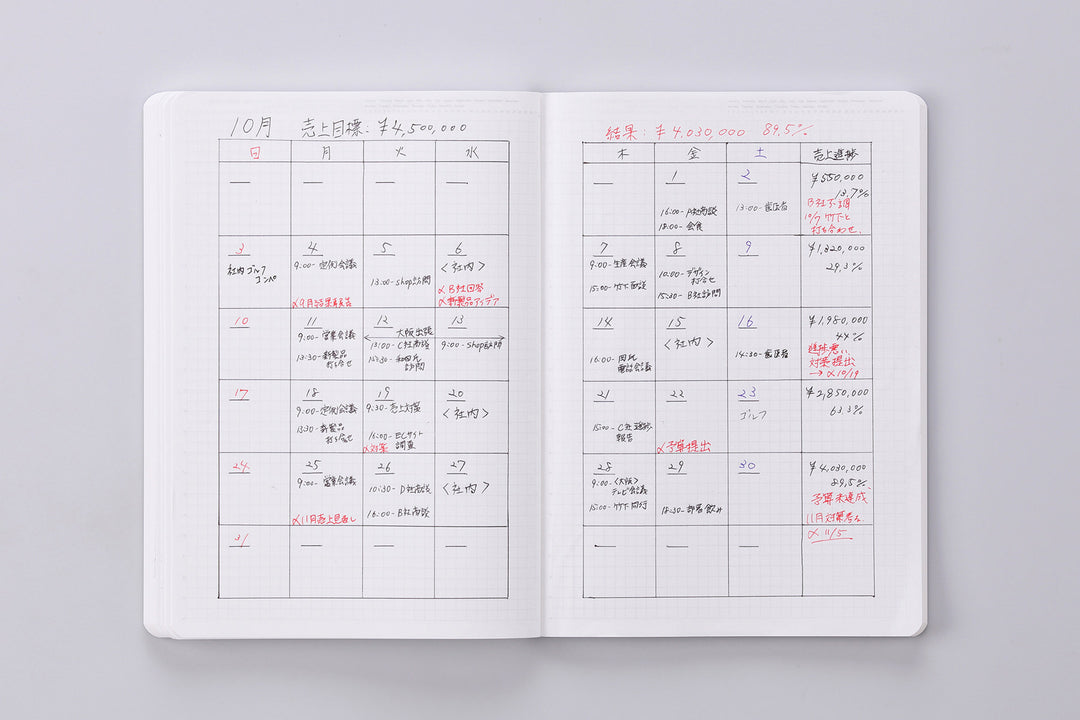 10月 売上目標:¥4,500,000
結果:¥4,030,000 89.5%
日 月 火 水
木 金 土 売上進捗
1
16:00-A社商談
18:00-会食
2
13:00-歯医者
¥550,000
13.7%
B社不調
10/7 竹下と
打ち合わせ、
3
社内ゴルフ
コンペ
4
9:00-定例会議
〆9月結果報告
5
13:00-shop訪問
6
〈社内〉
〆B社回答
〆新製品アイデア
7
9:00-生産会議
15:00-竹下面談
8
10:00-デザイン
打合せ
15:30-B社訪問
9
¥1,320,000
29.3%
10
11
9:00-営業会議
13:30-新製品
打ち合せ
12
大阪出張
13:00-C社商談
訪問
13
9:00-shop訪問
14
16:00-
電話会議
15
〈社内〉
16
14:30-歯医者
¥1,980,000
44%
進捗悪い、
対策提出
→〆10/19
17
18
9:00-定例会議
13:30-新製品
打ち合せ
19
9:30-売上対策
15:00-ECサイト
調査
〆対策
20
〈社内〉
21
15:00-C社進捗
報告
22
〆予算提出
23
ゴルフ
¥2,850,000
63.3%
24
25
9:00-営業会議
〆11月売上見通し
26
10:30-D社商談
16:00-B社商談
27
〈社内〉
28
9:00-〈大阪〉
テレビ会議
15:00-竹下同行
29
18:30-部署飲み
30
¥4,030,000
89.5%
予算未達成、
11月対策考える
〆11/5
31